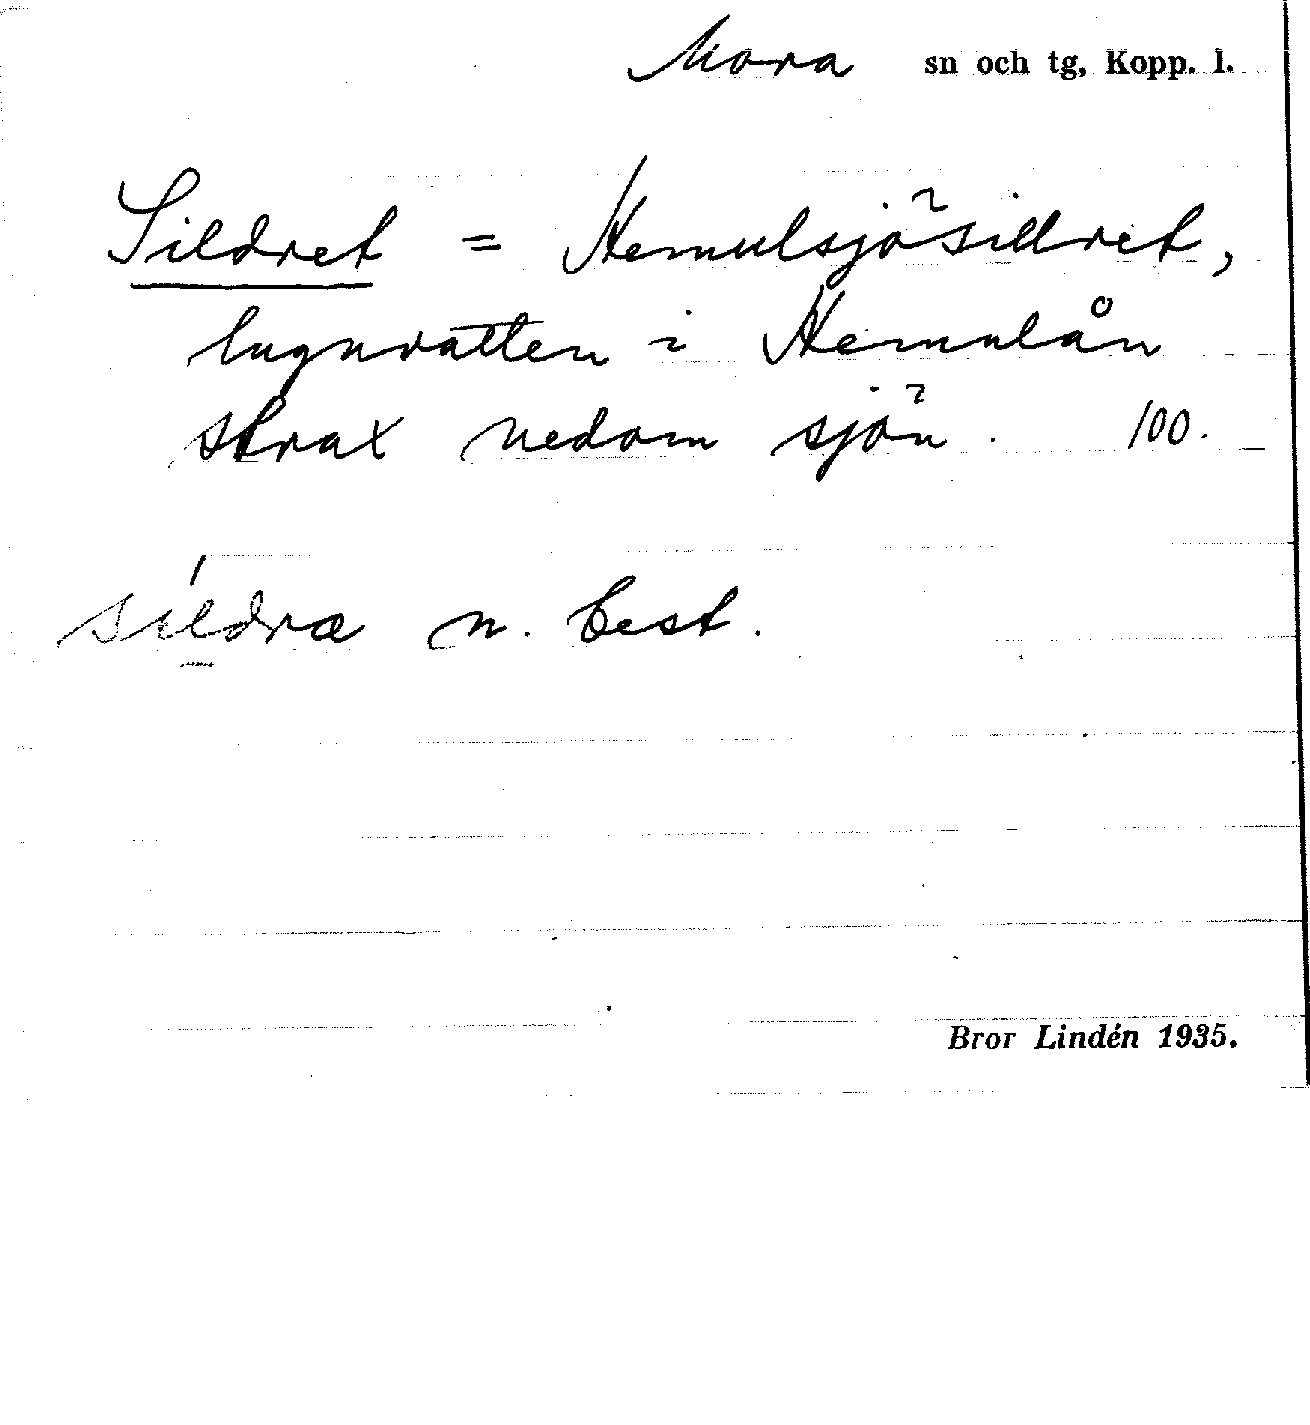 Mora sn och tg, Kopp. l.
Sildret = Hemulsjösildret,
lugnvatten i Hemulån
strax nedom sjön. 100.
síldrä n. best.
Bror Lindén 1935.